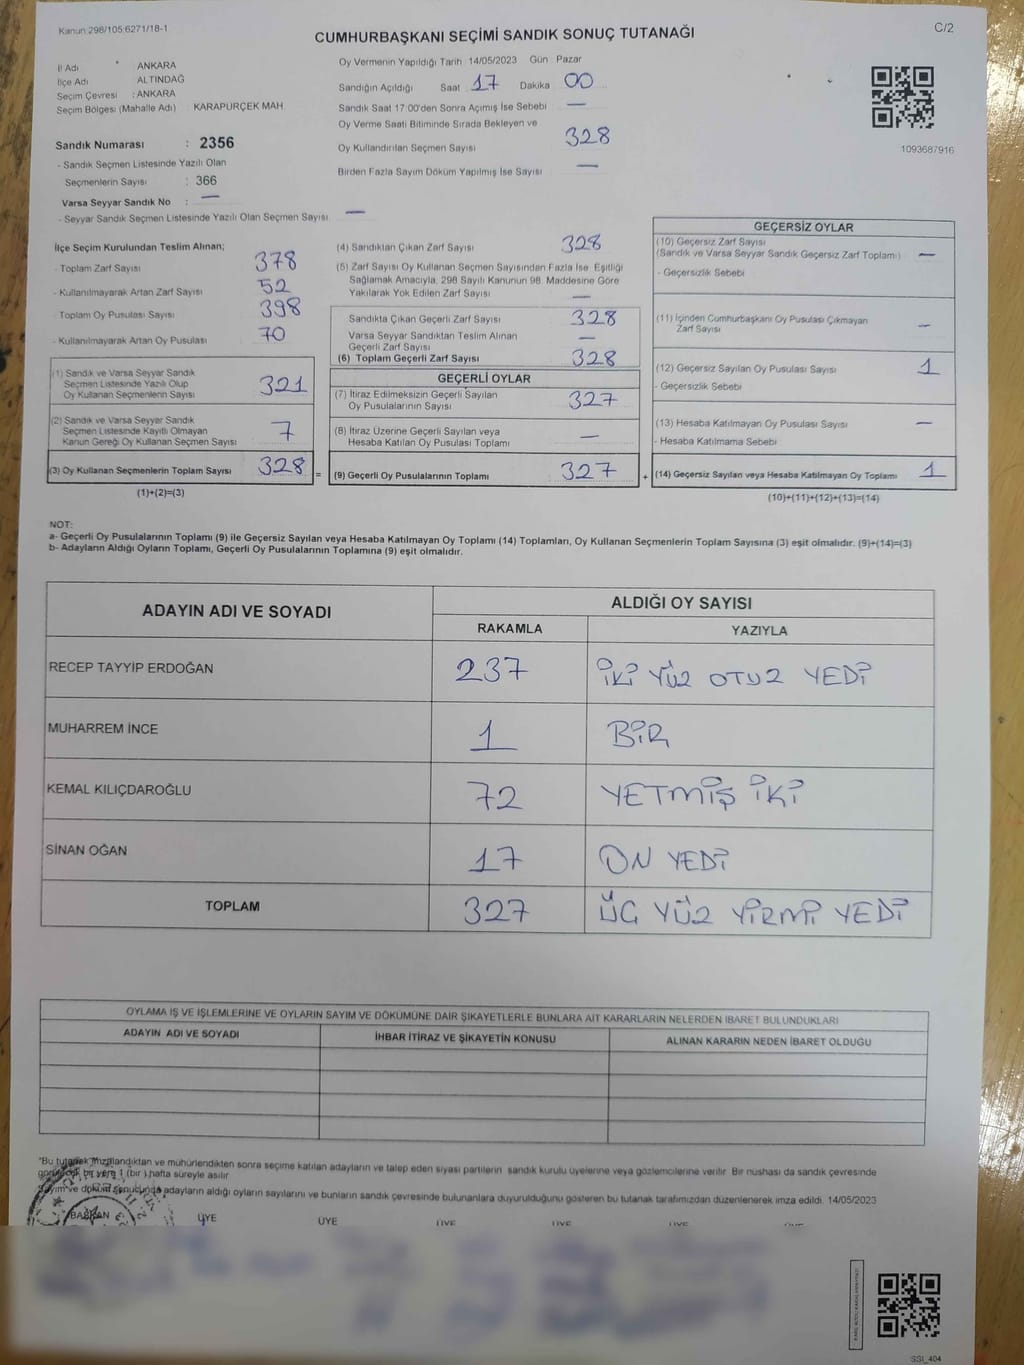 Kanun:298/105:6271/18-1
C/2
CUMHURBAŞKANI SEÇİMİ SANDIK SONUÇ TUTANAĞI
İl Adı ANKARA
İlçe Adı ALTINDAĞ
Seçim Çevresi : ANKARA
Seçim Bölgesi (Mahalle Adı) : KARAPÜRÇEK MAH
Sandık Numarası : 2356
- Sandık Seçmen Listesinde Yazılı Olan
Seçmenlerin Sayısı : 366
Varsa Seyyar Sandık No : —
- Seyyar Sandık Seçmen Listesinde Yazılı Olan Seçmen Sayısı —
Oy Vermenin Yapıldığı Tarih 14/05/2023 Gün Pazar
Sandığın Açıldığı Saat 17 Dakika 00
Sandık Saat 17:00'den Sonra Açımış İse Sebebi —
Oy Verme Saati Bitiminde Sırada Bekleyen ve
Oy Kullandırılan Seçmen Sayısı 328
Birden Fazla Sayım Döküm Yapılmış İse Sayısı —
1093687916
İlçe Seçim Kurulundan Teslim Alınan;
- Toplam Zarf Sayısı 378
- Kullanılmayarak Artan Zarf Sayısı 52
- Toplam Oy Pusulası Sayısı 398
- Kullanılmayarak Artan Oy Pusulası 70
(1) Sandık ve Varsa Seyyar Sandık
Seçmen Listesinde Yazılı Olup
Oy Kullanan Seçmenlerin Sayısı 321
(2) Sandık ve Varsa Seyyar Sandık
Seçmen Listesinde Kayıtlı Olmayan
Kanun Gereği Oy Kullanan Seçmen Sayısı 7
(3) Oy Kullanan Seçmenlerin Toplam Sayısı 328 =
(1)+(2)=(3)
(4) Sandıktan Çıkan Zarf Sayısı 328
(5) Zarf Sayısı Oy Kullanan Seçmen Sayısından Fazla İse Eşitliği
Sağlamak Amacıyla, 298 Sayılı Kanunun 98. Maddesine Göre
Yakılarak Yok Edilen Zarf Sayısı —
Sandıkta Çıkan Geçerli Zarf Sayısı 328
Varsa Seyyar Sandıktan Teslim Alınan
Geçerli Zarf Sayısı —
(6) Toplam Geçerli Zarf Sayısı 328
GEÇERLİ OYLAR
(7) İtiraz Edilmeksizin Geçerli Sayılan
Oy Pusulalarının Sayısı 327
(8) İtiraz Üzerine Geçerli Sayılan veya
Hesaba Katılan Oy Pusulası Toplamı —
(9) Geçerli Oy Pusulalarının Toplamı 327 +
GEÇERSİZ OYLAR
(10) Geçersiz Zarf Sayısı
(Sandık ve Varsa Seyyar Sandık Geçersiz Zarf Toplamı) —
- Geçersizlik Sebebi
(11) İçinden Cumhurbaşkanı Oy Pusulası Çıkmayan
Zarf Sayısı —
(12) Geçersiz Sayılan Oy Pusulası Sayısı 1
- Geçersizlik Sebebi
(13) Hesaba Katılmayan Oy Pusulası Sayısı —
- Hesaba Katılmama Sebebi
(14) Geçersiz Sayılan veya Hesaba Katılmayan Oy Toplamı 1
(10)+(11)+(12)+(13)=(14)
NOT:
a- Geçerli Oy Pusulalarının Toplamı (9) ile Geçersiz Sayılan veya Hesaba Katılmayan Oy Toplamı (14) Toplamları, Oy Kullanan Seçmenlerin Toplam Sayısına (3) eşit olmalıdır. (9)+(14)=(3)
b- Adayların Aldığı Oyların Toplamı, Geçerli Oy Pusulalarının Toplamına (9) eşit olmalıdır.
ADAYIN ADI VE SOYADI ALDIĞI OY SAYISI
RAKAMLA YAZIYLA
RECEP TAYYİP ERDOĞAN 237 İKİ YÜZ OTUZ YEDİ
MUHARREM İNCE 1 BİR
KEMAL KILIÇDAROĞLU 72 YETMİŞ İKİ
SİNAN OĞAN 17 ON YEDİ
TOPLAM 327 ÜÇ YÜZ YİRMİ YEDİ
OYLAMA İŞ VE İŞLEMLERİNE VE OYLARIN SAYIM VE DÖKÜMÜNE DAİR ŞİKAYETLERLE BUNLARA AİT KARARLARIN NELERDEN İBARET BULUNDUKLARI
ADAYIN ADI VE SOYADI İHBAR İTİRAZ VE ŞİKAYETİN KONUSU ALINAN KARARIN NEDEN İBARET OLDUĞU
*Bu tutanak imzalandıktan ve mühürlendikten sonra seçime katılan adayların ve talep eden siyasi partilerin sandık kurulu üyelerine veya gözlemcilerine verilir. Bir nüshası da sandık çevresinde
görülecek bir yere 1 (bir) hafta süreyle asılır.
Sayım ve döküm sonucunda adayların aldığı oyların sayılarını ve bunların sandık çevresinde bulunanlara duyurulduğunu gösteren bu tutanak tarafımızdan düzenlenerek imza edildi. 14/05/2023
BAŞKAN ÜYE ÜYE ÜYE ÜYE ÜYE ÜYE
SSI_404